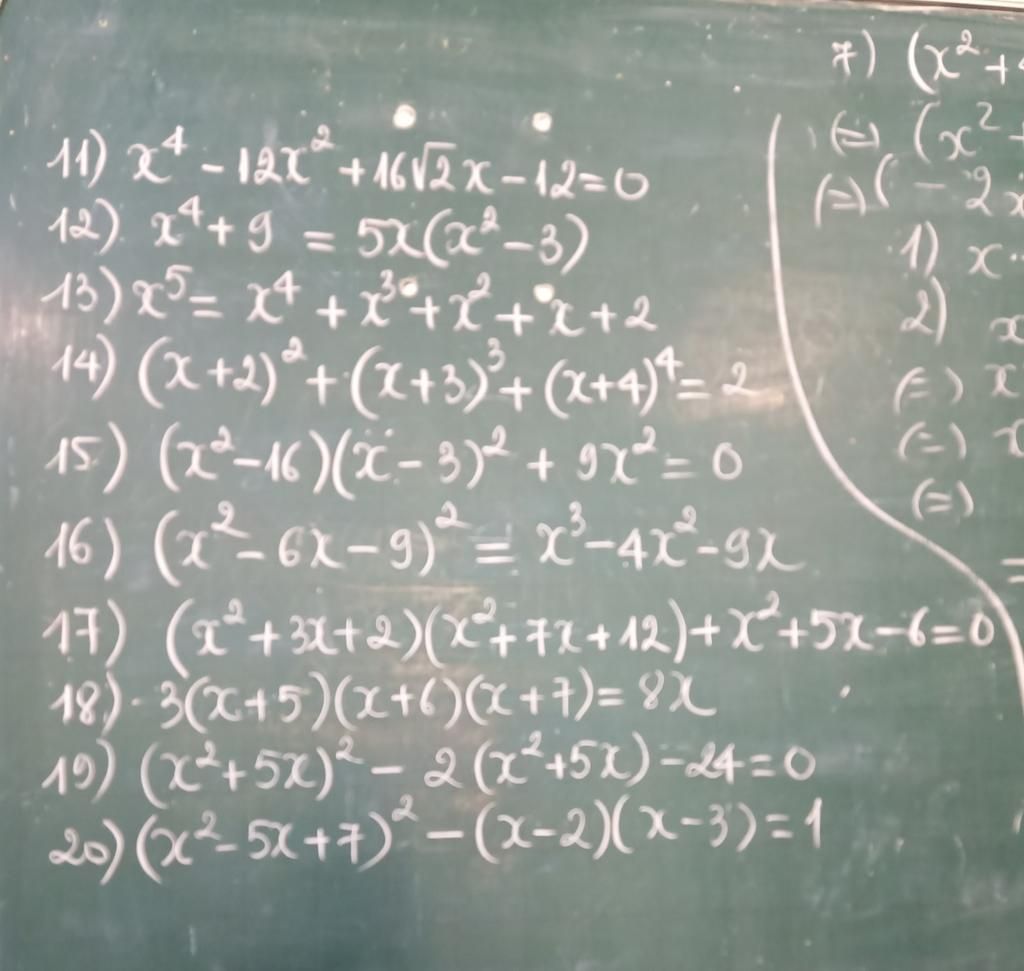 11) x⁴ - 12x² + 16√2x - 12 = 0
12) x⁴ + 9 = 5x(x² - 3)
13) x⁵ = x⁴ + x³ + x² + x + 2
14) (x+2)² + (x+3)³ + (x+4)⁴ = 2
15) (x² - 16)(x - 3)² + 9x² = 0
16) (x² - 6x - 9)² = x³ - 4x² - 9x
17) (x² + 3x + 2)(x² + 7x + 12) + x² + 5x - 6 = 0
18) 3(x+5)(x+6)(x+7) = 8x
19) (x² + 5x)² - 2(x² + 5x) - 24 = 0
20) (x² - 5x + 7)² - (x-2)(x-3) = 1
7) (x² +
(=) (x²
(=) ( - 2
1) x
2) x
(=) x
(=)
(=)
=